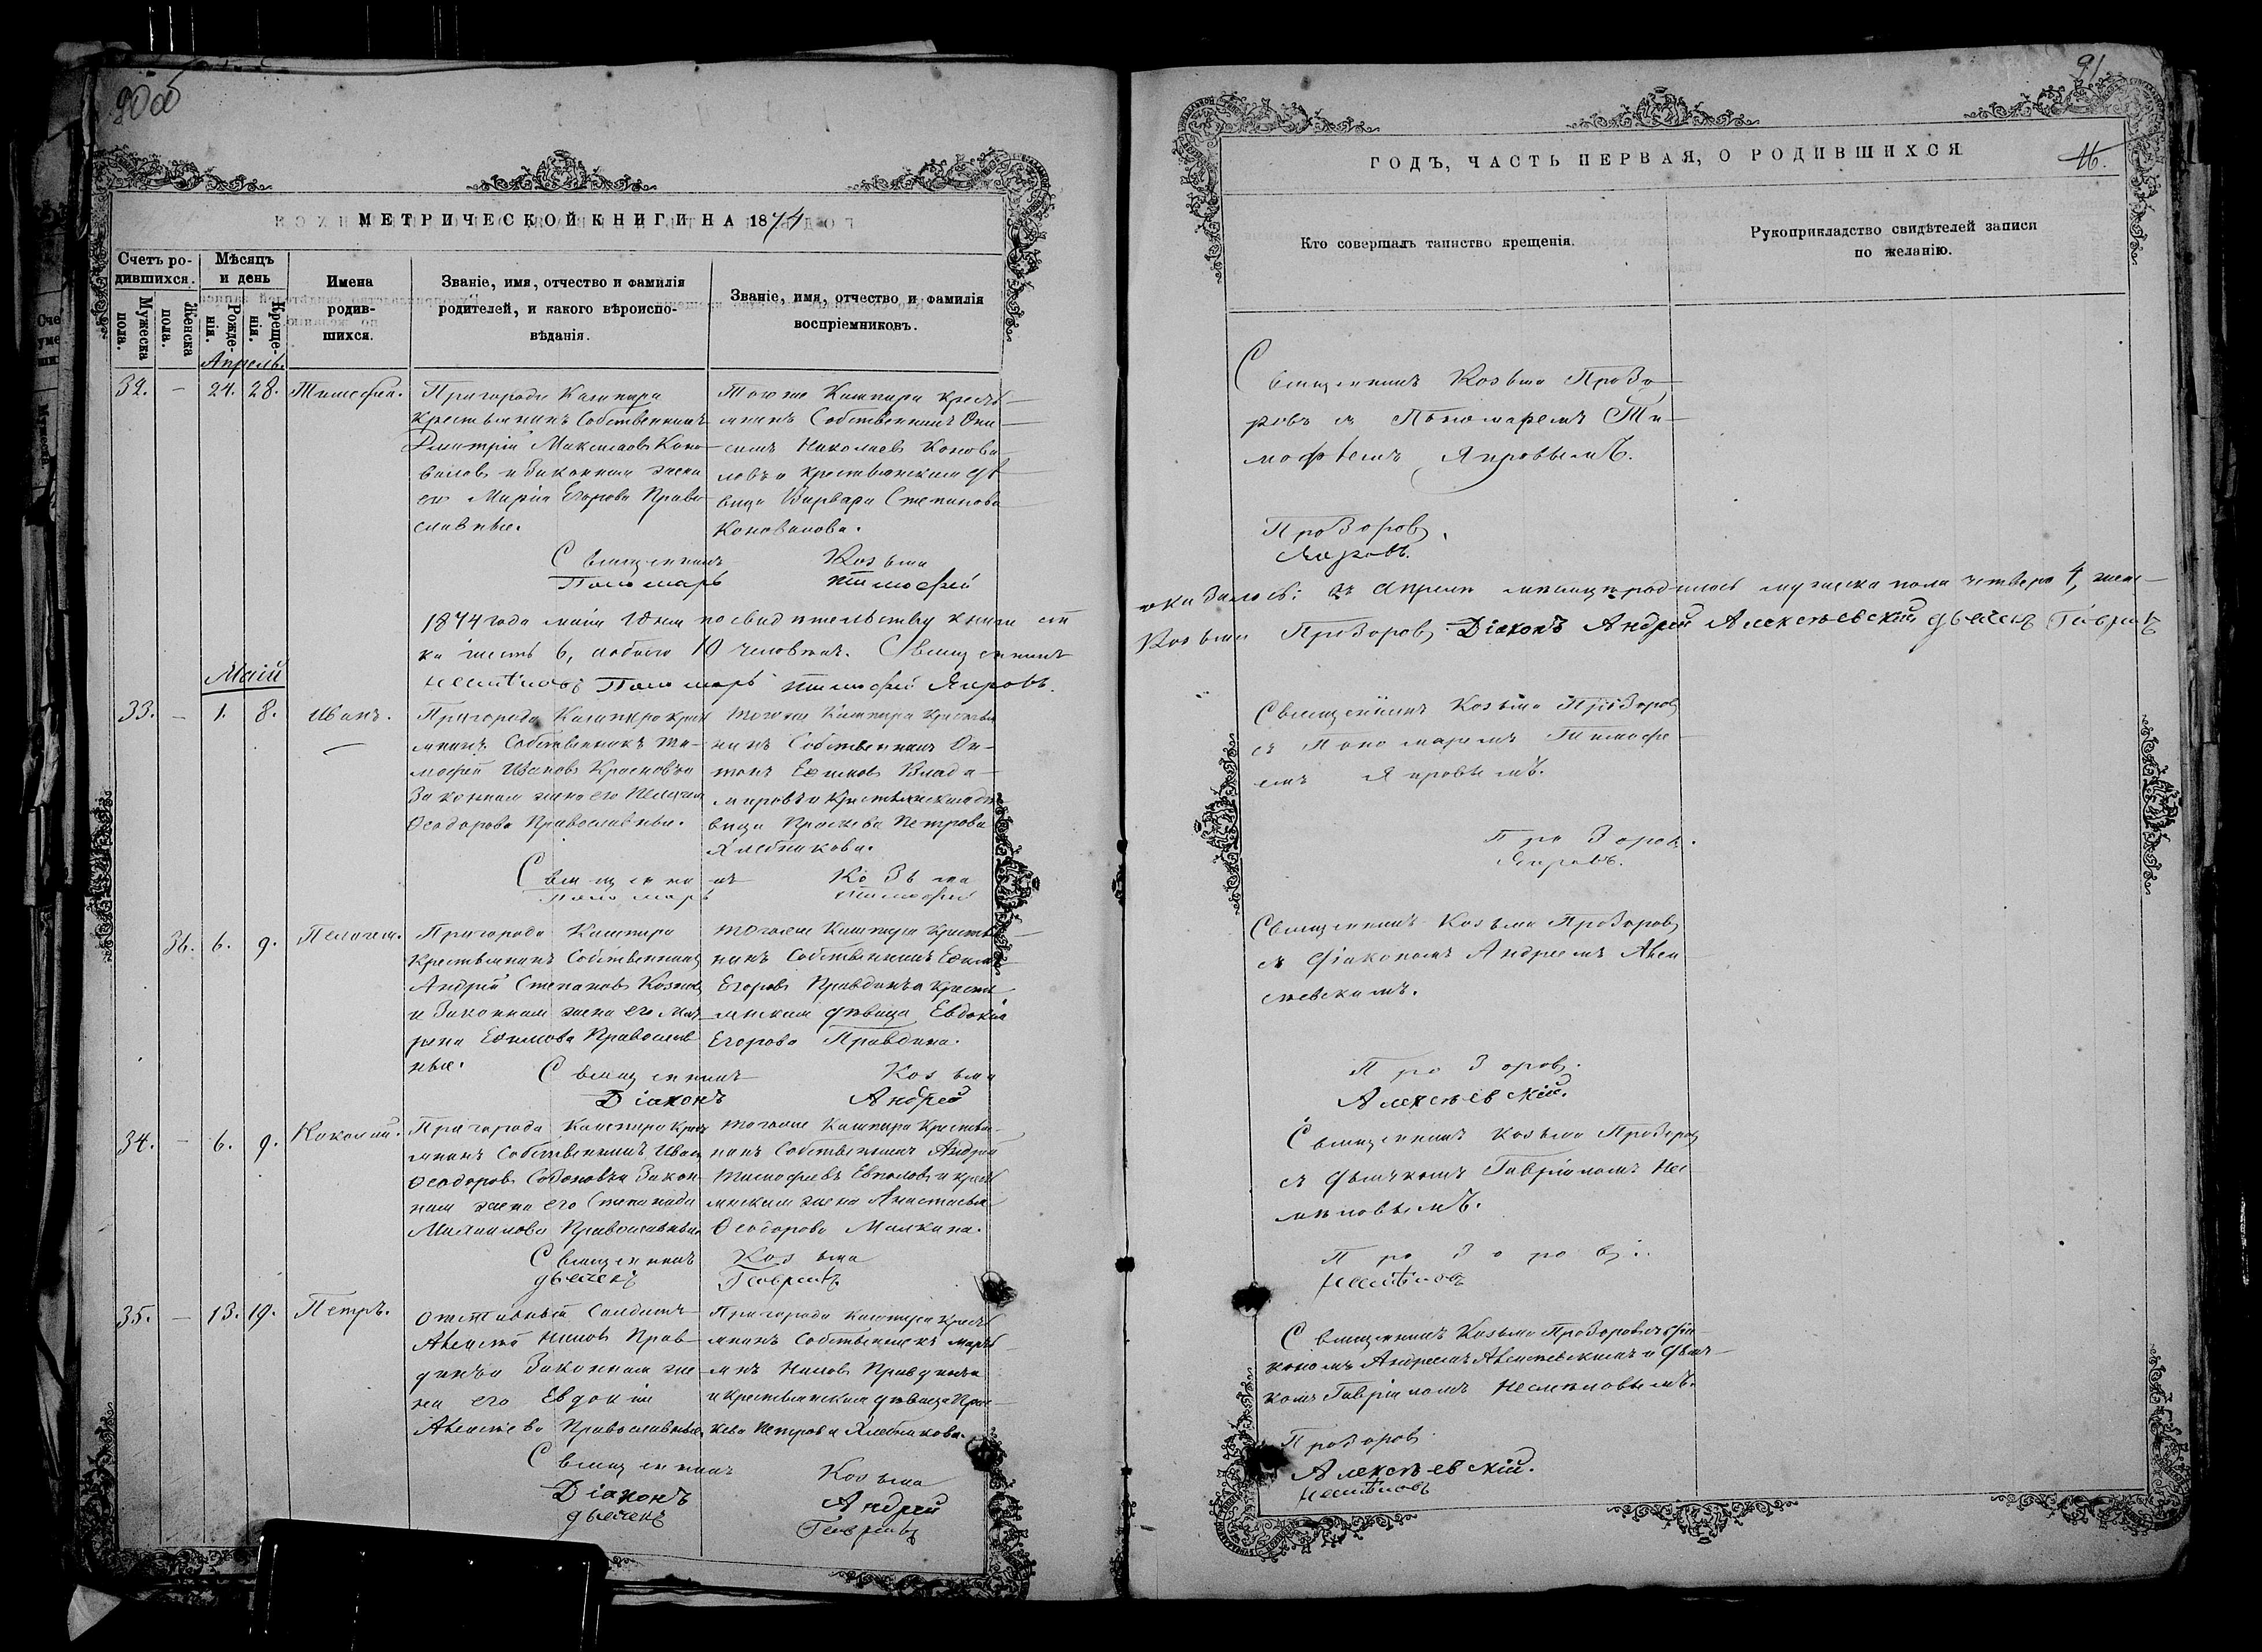 90об
МЕТРИЧЕСКОЙ КНИГИ НА 1874
Счетъ родившихся.
Мужеска пола.
Женска пола.
Мѣсяцъ и день
Рожденія.
Крещенія.
Имена родившихся.
Званіе, имя, отчество и фамилія
родителей, и какого вѣроиспо-
вѣданія.
Званіе, имя, отчество и фамилія
воспріемниковъ.
Апрель.
32. – 24. 28. Тимофей.
Пригорода Кашпира
Крестьянинъ Собственникъ
Дмитрій Максимовъ Коно-
валовъ и Законная жена
его Марія Егорова Право-
славные.
Тогоже Кашпира кресть-
янинъ Собственникъ Они-
симъ Николаевъ Конова-
ловъ и крестьянская дѣ-
вица Варвара Степанова
Коновалова.
Священникъ Козьма
Пономарь Тимофей
1874 года маія дня по свидѣтельству книги
ка шесть 6, обоего 10 человѣкъ. Священникъ
Пономарь Тимофей Яировъ.
Маій
33. – 1. 8. Иванъ.
Пригорода Кашпира крест
янинъ Собственникъ Ти-
мофей Ивановъ
Законная жена его Пелагея
Ѳеодорова Православные.
Тогоже Кашпира крестья
нинъ Собственникъ
Ефимовъ Влади-
мировъ и Крестьянская дѣ-
вица Петрова
Хлебникова.
Священникъ Козьма
Пономарь Тимофей
36. 6. 9. Пелагея.
Пригорода Кашпира
Крестьянинъ Собственникъ
Андрей Степановъ
и Законная жена его Ма-
рина Ефимова Православ
ные.
Тогоже Кашпира крестья-
нинъ Собственникъ Ефимъ
Егоровъ Правдинъ и крестья
янская дѣвица Евдокія
Егорова Правдина.
Священникъ Козьма
Діаконъ Андрей
34. – 6. 9. Николай.
Пригорода Кашпира крест
янинъ Собственникъ Иванъ
Ѳеодоровъ Законная
жена его Степанида
Михаилова Православные
Тогоже Кашпира Крестья-
нинъ Собственникъ Андрей
Тимофеевъ и крест
янская жена Анастасія
Ѳеодорова Малкина.
Священникъ Козьма
Дьячекъ Гавріилъ
35. – 13. 19. Петръ.
Отставный Солдатъ
Алексѣй Ниловъ Прав-
динъ и Законная же
на его Евдокія
Алексѣева Православные.
Пригорода Кашпира Кресть
янинъ Собственникъ
Ниловъ Правдинъ
и Крестьянская дѣвица Прас-
кева Петрова Хлебникова.
Священникъ Козьма
Діаконъ Андрей
Дьячекъ Гавріилъ
91
ГОДЪ, ЧАСТЬ ПЕРВАЯ, О РОДИВШИХСЯ
16.
Кто совершалъ таинство крещенія.
Рукоприкладство свидѣтелей записи
по желанію.
Священникъ Козьма Прозо-
ровъ съ Пономаремъ Ти-
мофѣемъ Яировымъ.
Прозоровъ.
Яировъ.
оказалось: въ Апрелѣ мѣсяцѣ родилось мужеска пола четверо 4, женс-
Козьма Прозоровъ Діаконъ Андрей Алексѣевскій Дьячекъ Гавріилъ
Священникъ Козьма Прозоровъ
съ Пономаремъ Тимофе-
емъ Яировымъ.
Прозоровъ.
Яировъ.
Священникъ Козьма Прозоровъ
съ Діакономъ Андреемъ Алек-
сѣевскимъ.
Прозоровъ.
Алексѣевскій.
Священникъ Козьма Прозоровъ
съ Дьячкомъ Гавріиломъ Нес-
мѣловымъ.
Прозоровъ.
Несмѣловъ
Священникъ Козьма Прозоровъ съ Діа-
кономъ Андреемъ Алексѣевскимъ и Дьяч-
комъ Гавріиломъ Несмѣловымъ.
Прозоровъ.
Алексѣевскій.
Несмѣловъ